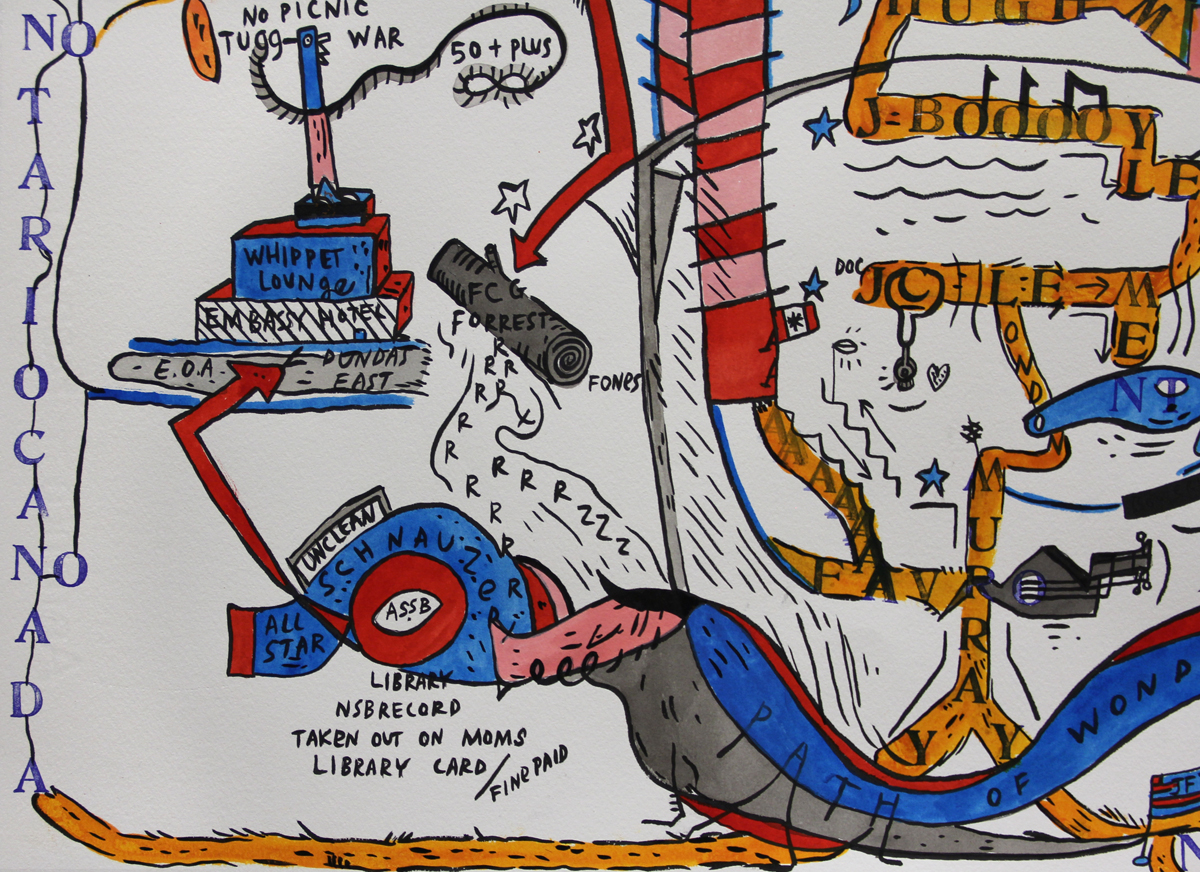 NO
TARIOCANADA
NO
NO PICNIC
TUGG WAR
50 + PLUS
WHIPPET
LOUNGE
EMBASSY HOTEL
E.O.A DUNDAS
EAST
FCG
FORREST
FONES
R
R R
R R
R
R
R
R
R R R ZZZ
R
R
UNCLEAN
SCHNAUZER
ASSB
ALL
STAR
LIBRARY
NSBRECORD
TAKEN OUT ON MOMS
LIBRARY CARD/FINE PAID
HUGH M
J-BOOOOY
LE
DOC
J©-LE→ME
LONDON
N
AAAAAAA
FAVR
MURRAY
Y
PATH OF WOND
JF
N